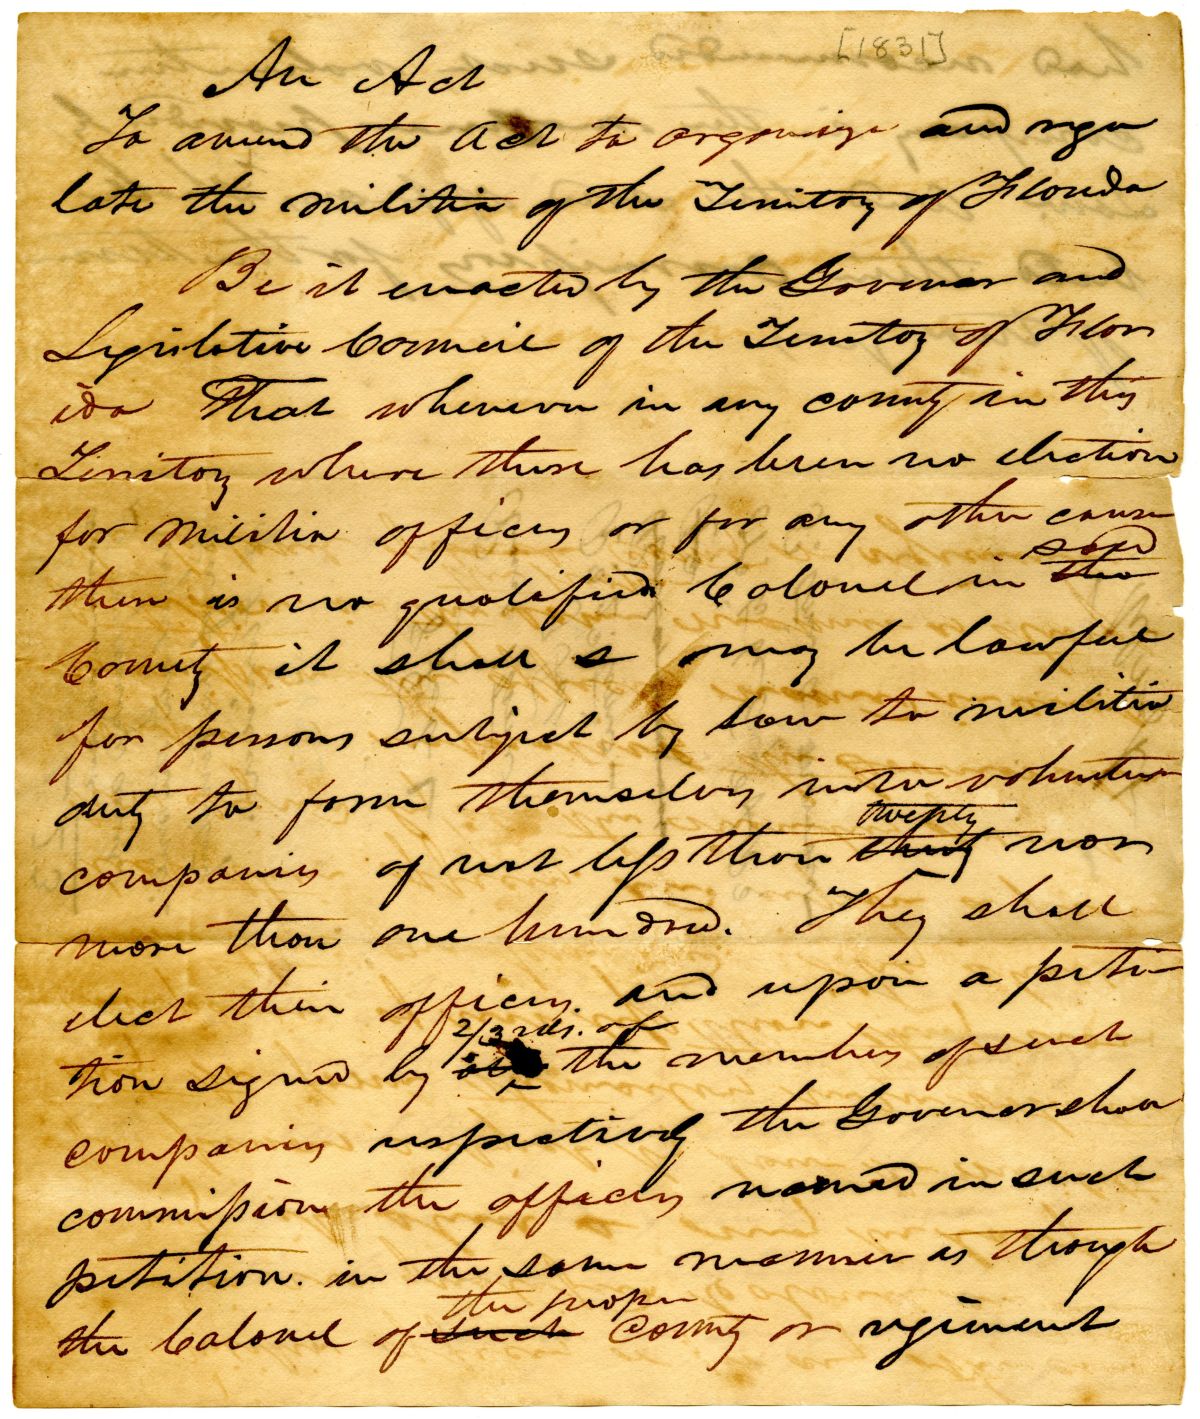 [1831]
An Act
To amend the Act to organize and regu
late the militia of the Territory of Florida
Be it enacted by the Governor and
Legislative Council of the Territory of Flor
ida That whenever in any county in this
Territory where there has been no election
for militia officers or for any other cause
said
there is no qualified Colonel in the
County it shall & may be lawful
for persons subject by law to militia
duty to form themselves into volunteer
twenty
companies of not less than thirty nor
more than one hundred. They shall
elect their officers, and upon a peti
2/3rds. of
tion signed by the members of such
companies respectively the Governor shall
commission the officers named in such
petition. in the same manner as though
the proper
the Colonel of such County or regiment